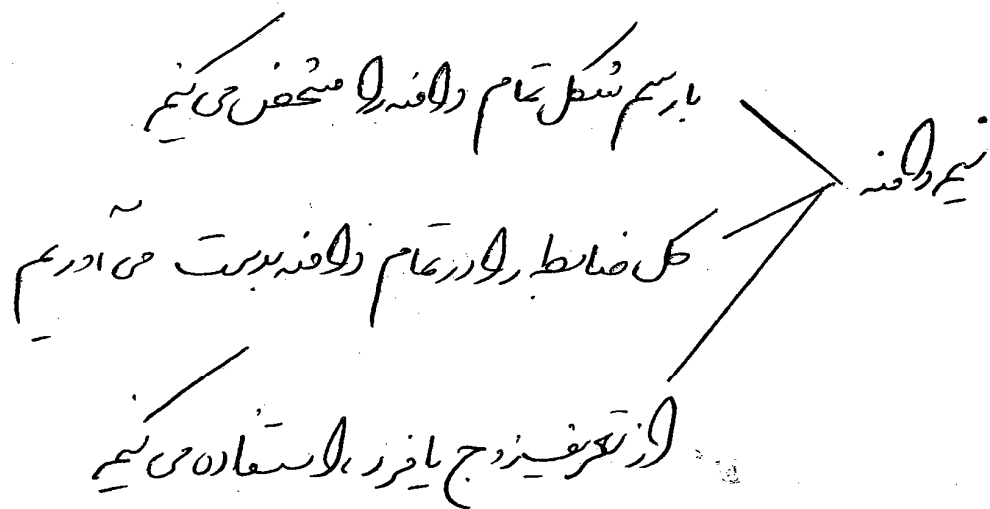 نیم دامنه
با رسم شکل تمام دامنه را مشخص می کنیم
کل ضابطه را در تمام دامنه بدست می آوریم
از تعریف زوج یا فرد، استفاده می کنیم